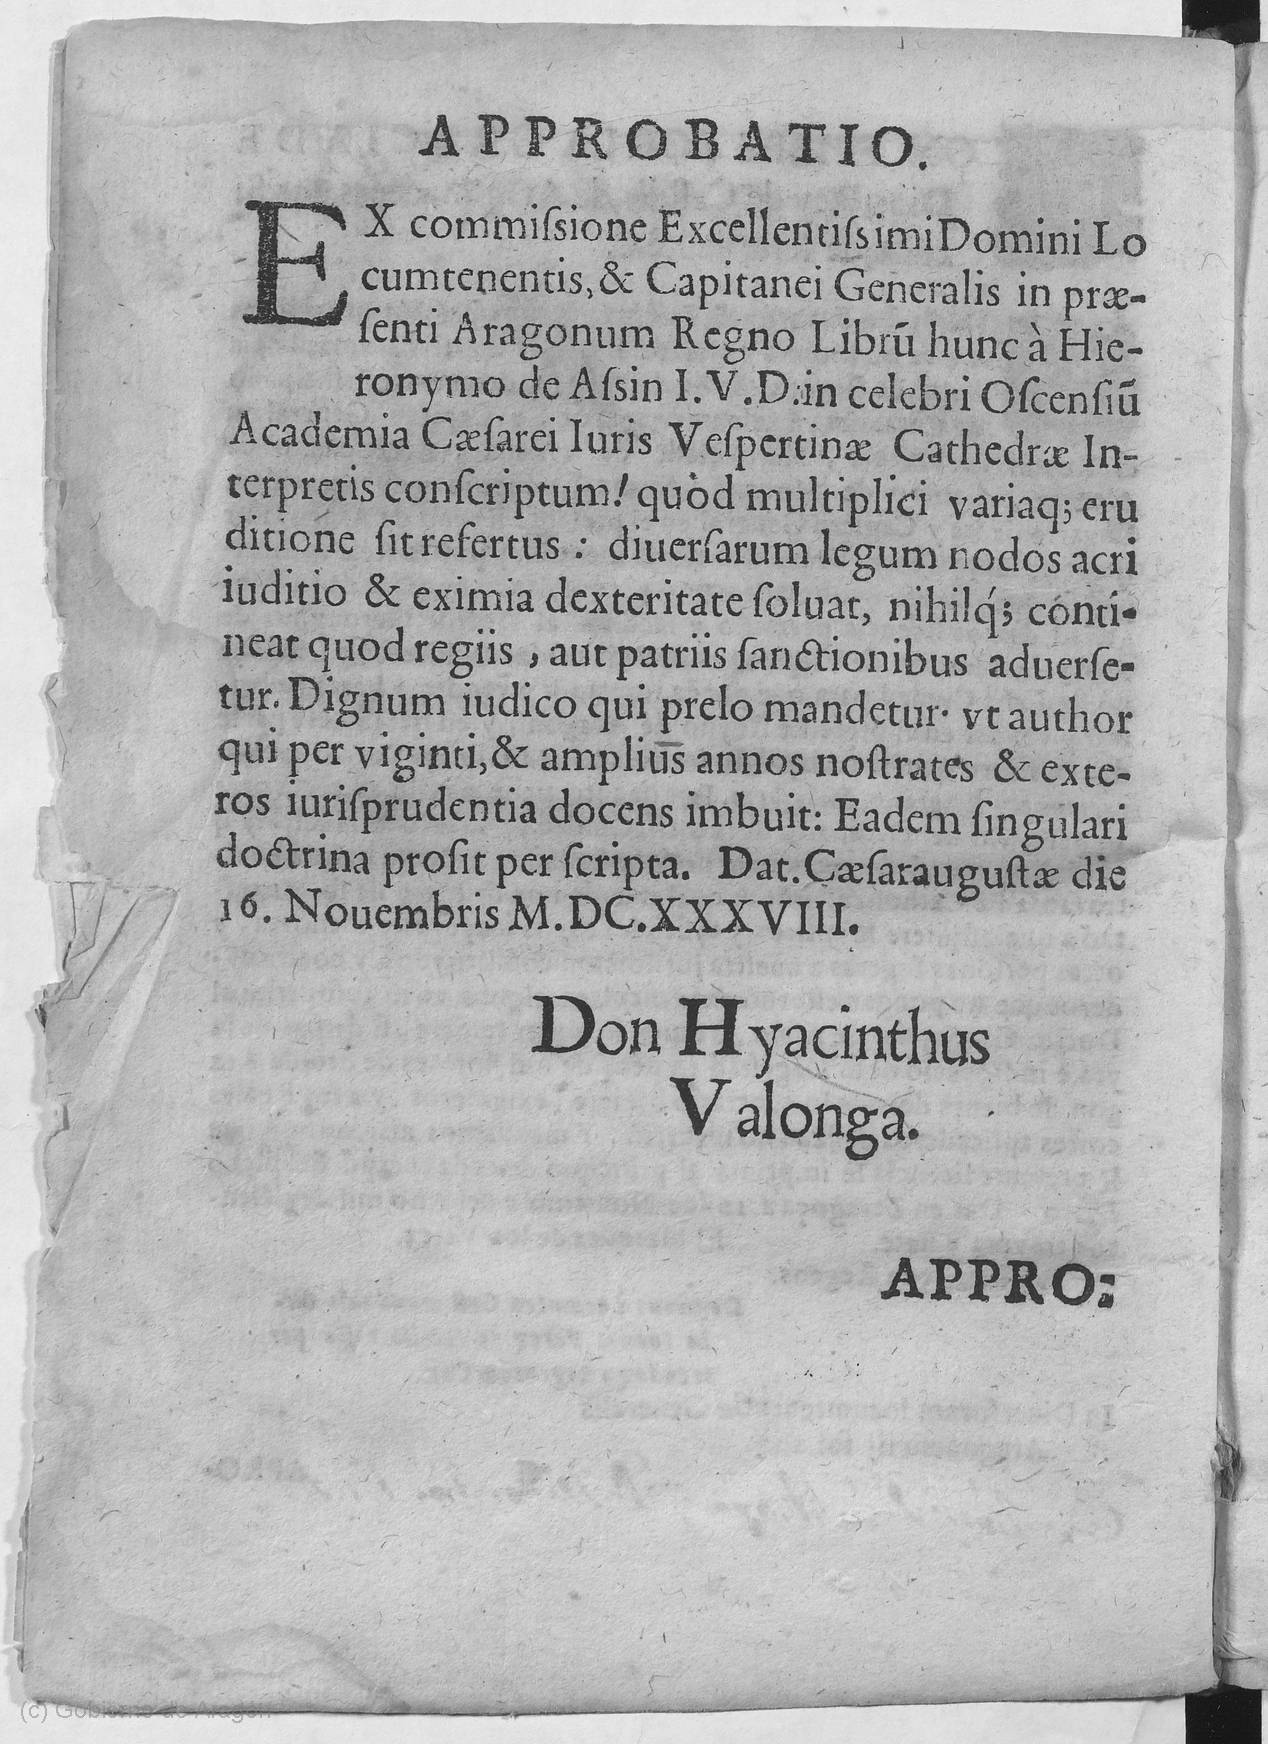 APPROBATIO.
EX commiſsione Excellentiſsimi Domini Lo
cumtenentis, & Capitanei Generalis in præ-
ſenti Aragonum Regno Librū hunc à Hie-
ronymo de Aſsin I.V.D. in celebri Oſcenſiū
Academia Cæſarei Iuris Veſpertinæ Cathedræ In-
terpretis conſcriptum! quòd multiplici variaq; eru
ditione ſit refertus : diuerſarum legum nodos acri
iuditio & eximia dexteritate ſoluat, nihilq́; conti-
neat quod regiis , aut patriis ſanctionibus aduerſe-
tur. Dignum iudico qui prelo mandetur· vt author
qui per viginti, & ampliūs annos noſtrates & exte-
ros iuriſprudentia docens imbuit: Eadem ſingulari
doctrina proſit per ſcripta. Dat. Cæſarauguſtæ die
16. Nouembris M.DC.XXXVIII.
Don Hyacinthus
Valonga.
APPRO:
(c) Gobierno de Aragón